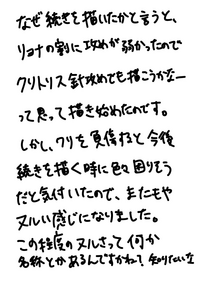 なぜ続きを描いたかと言うと、
リョナの割に攻めが弱かったので
クリトリス針攻めでも描こうかなー
って思って描き始めたのです。
しかし、クリを負傷すると今後
続きを描く時に色々困りそう
だと気付いたので、またもや
ヌルい感じになりました。
この程度のヌルさって何か
名称とかあるんですかね？知りたいな